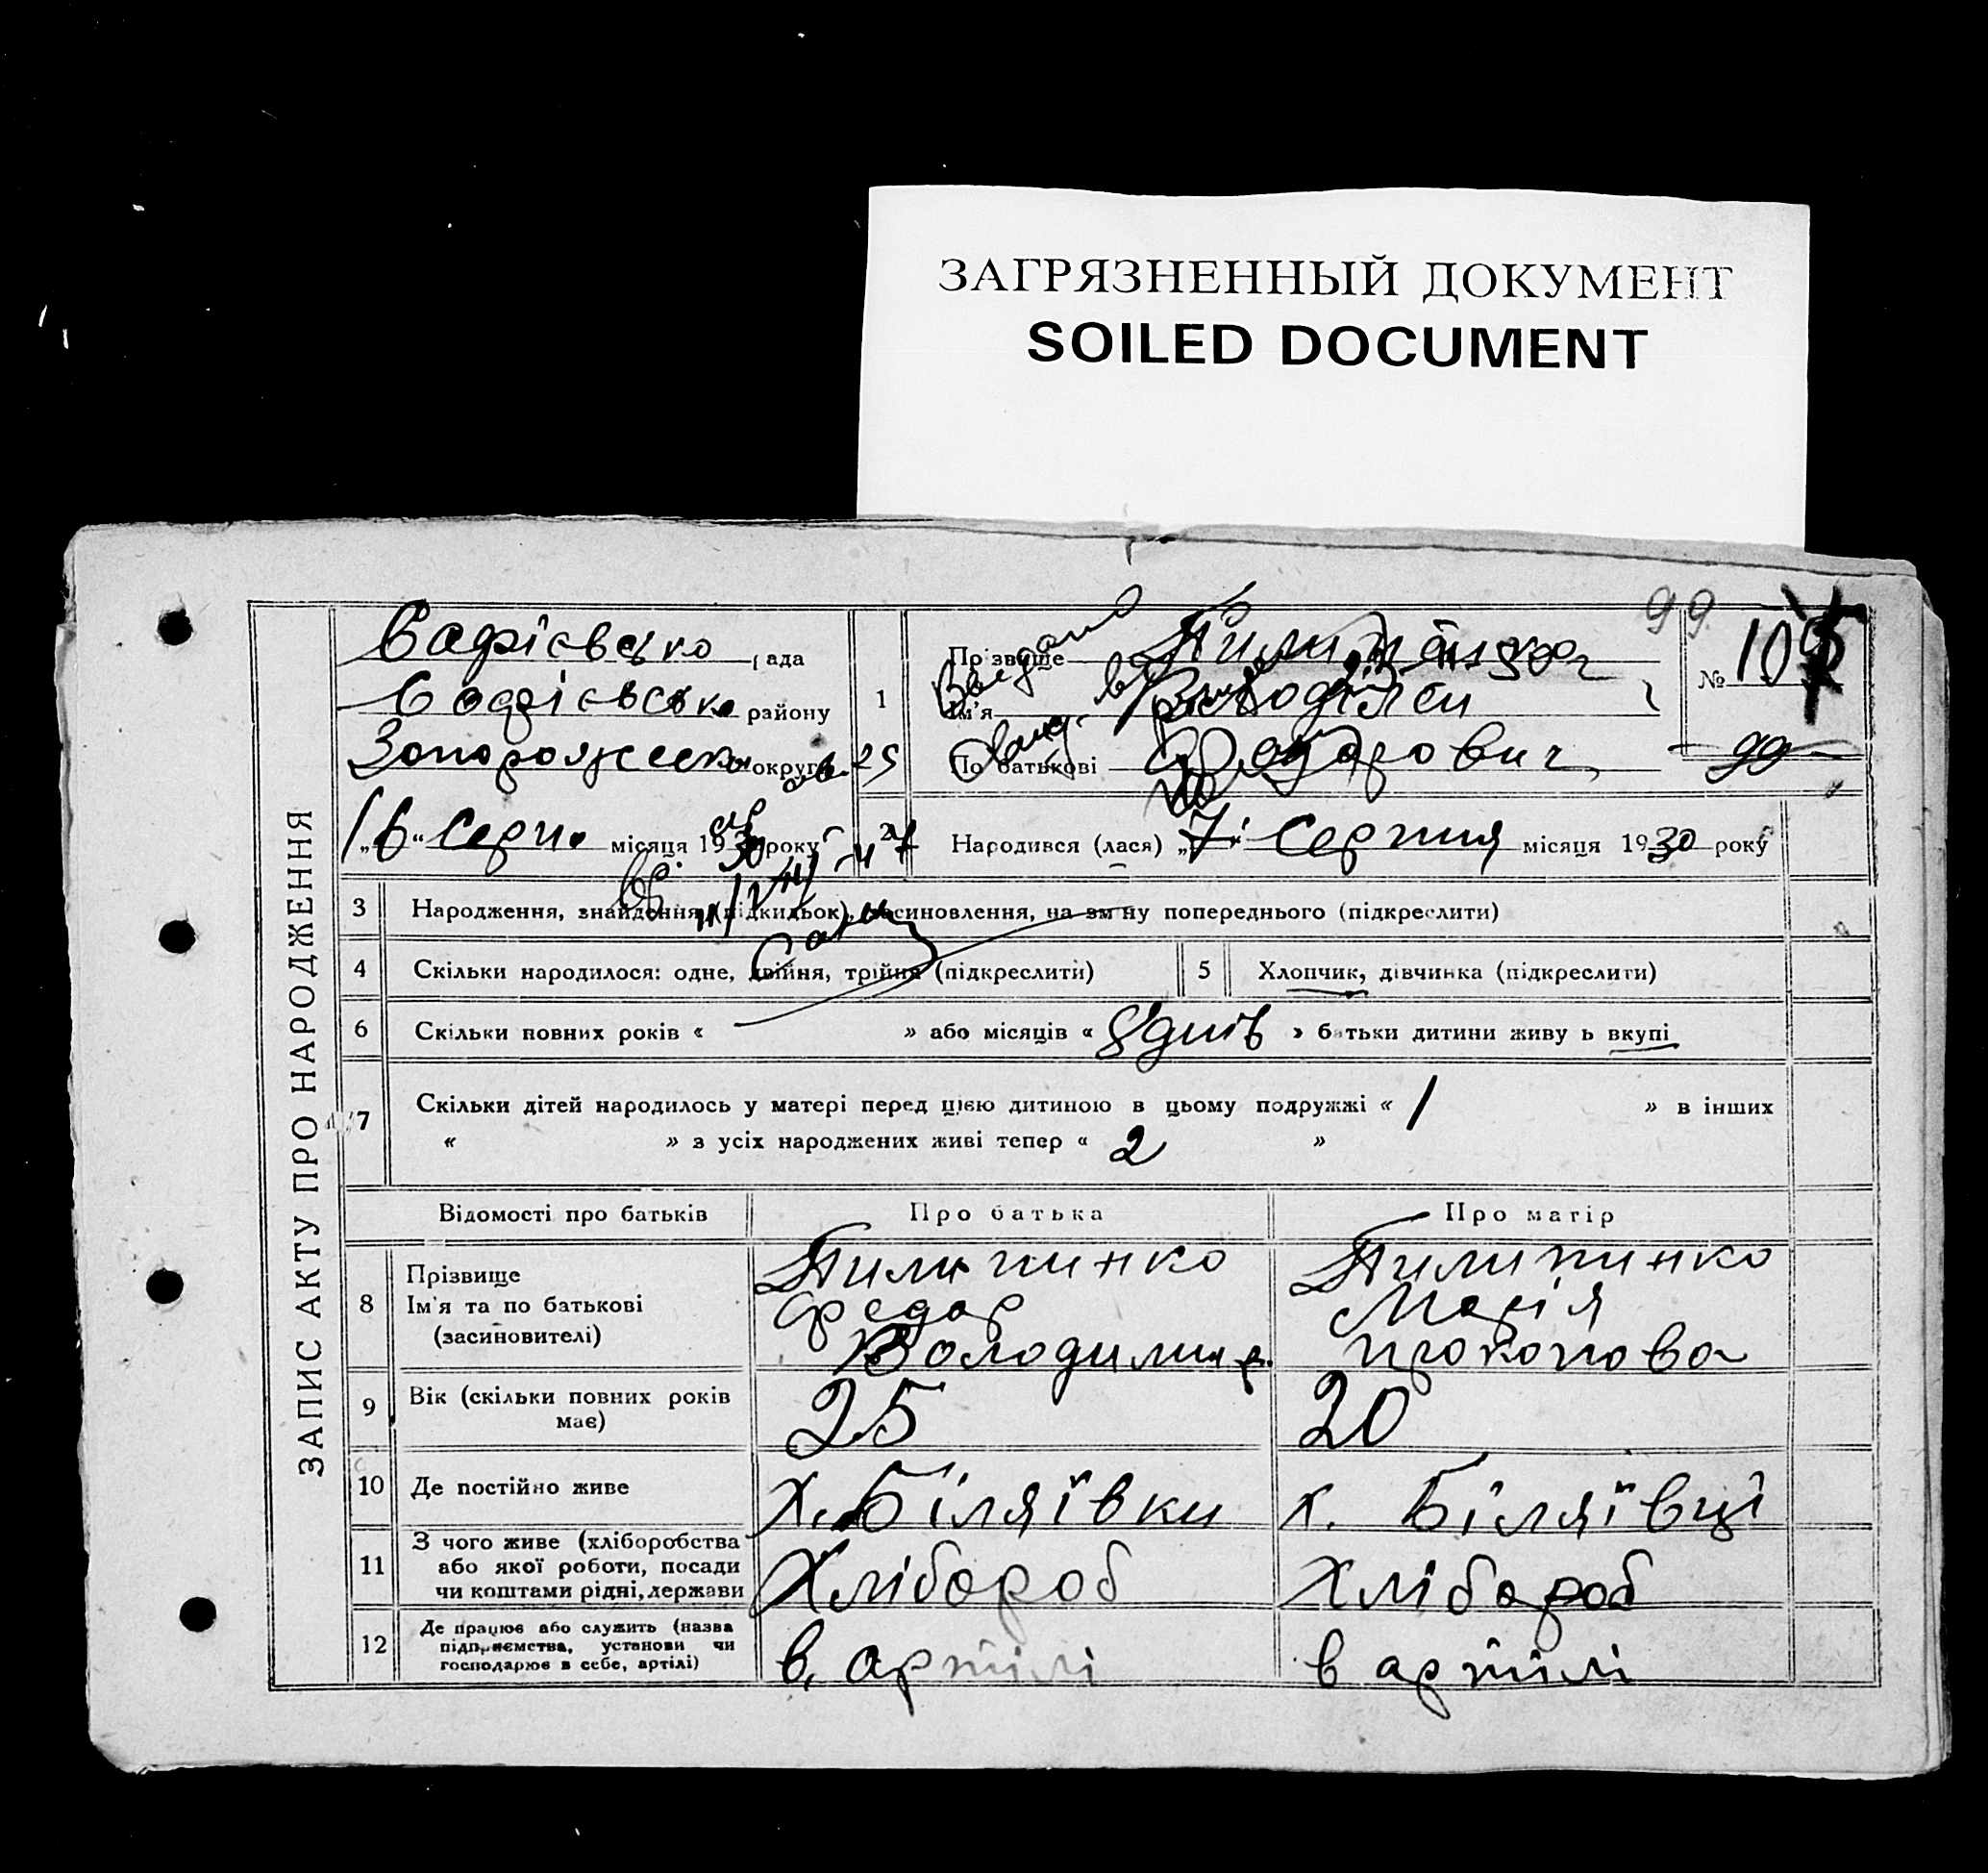 ЗАГРЯЗНЕННЫЙ ДОКУМЕНТ
SOILED DOCUMENT
99
ЗАПИС АКТУ ПРО НАРОДЖЕННЯ
Софієвсько рада
Софієвсько району
округи
„16“ серпн. місяця 1930 року
1
Прізвище
Ім'я
По батькові Федорович
№ 105
99
2 Народився (лася) „7“ Серпня місяця 1930 року
3 Народження, знайдення (підкидьок), засиновлення, на зміну попереднього (підкреслити)
4 Скільки народилося: одне, двійня, трійня (підкреслити)
5 Хлопчик, дівчинка (підкреслити)
6 Скільки повних років « » або місяців « 8 днів » батьки дитини живуть вкупі
7 Скільки дітей народилось у матері перед цією дитиною в цьому подружжі « 1 » в інших
« » з усіх народжених живі тепер « 2 »
Відомості про батьків Про батька Про матір
8 Прізвище
Ім'я та по батькові
(засиновителі)
Пилипинко
Федор
Володимир.
Пилипинко
Марія
Прокопова
9 Вік (скільки повних років
має)
25
20
10 Де постійно живе х. Біляївки х. Біляївці
11 З чого живе (хліборобства
або якої роботи, посади
чи коштами рідні, держави
Хлібороб
Хлібороб
12 Де працює або служить (назва
підприємства, установи чи
господарює в себе, артілі)
в артілі
в артілі